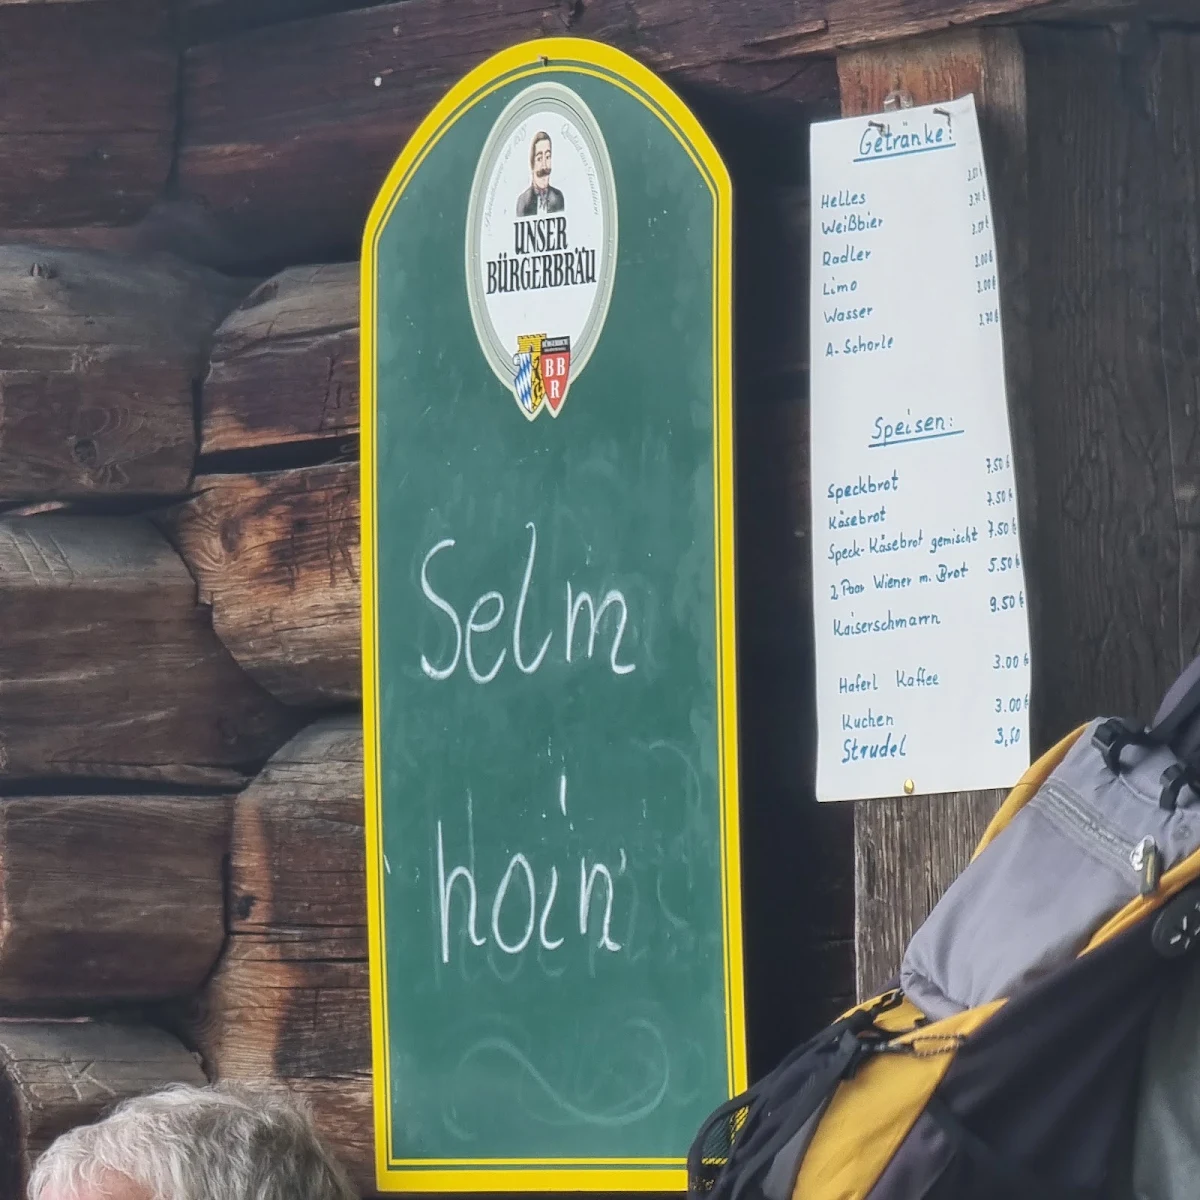 UNSER
BÜRGERBRÄU
BB
R
Selm
hoin
Getränke:
Helles
Weißbier
Radler
Limo
Wasser
A-Schorle
Speisen:
Speckbrot 7.50 €
Käsebrot 7.50 €
Speck-Käsebrot gemischt 7.50 €
2 Paar Wiener m. Brot 5.50 €
Kaiserschmarrn 9.50 €
Haferl Kaffee 3.00 €
Kuchen 3.00 €
Strudel 3,50